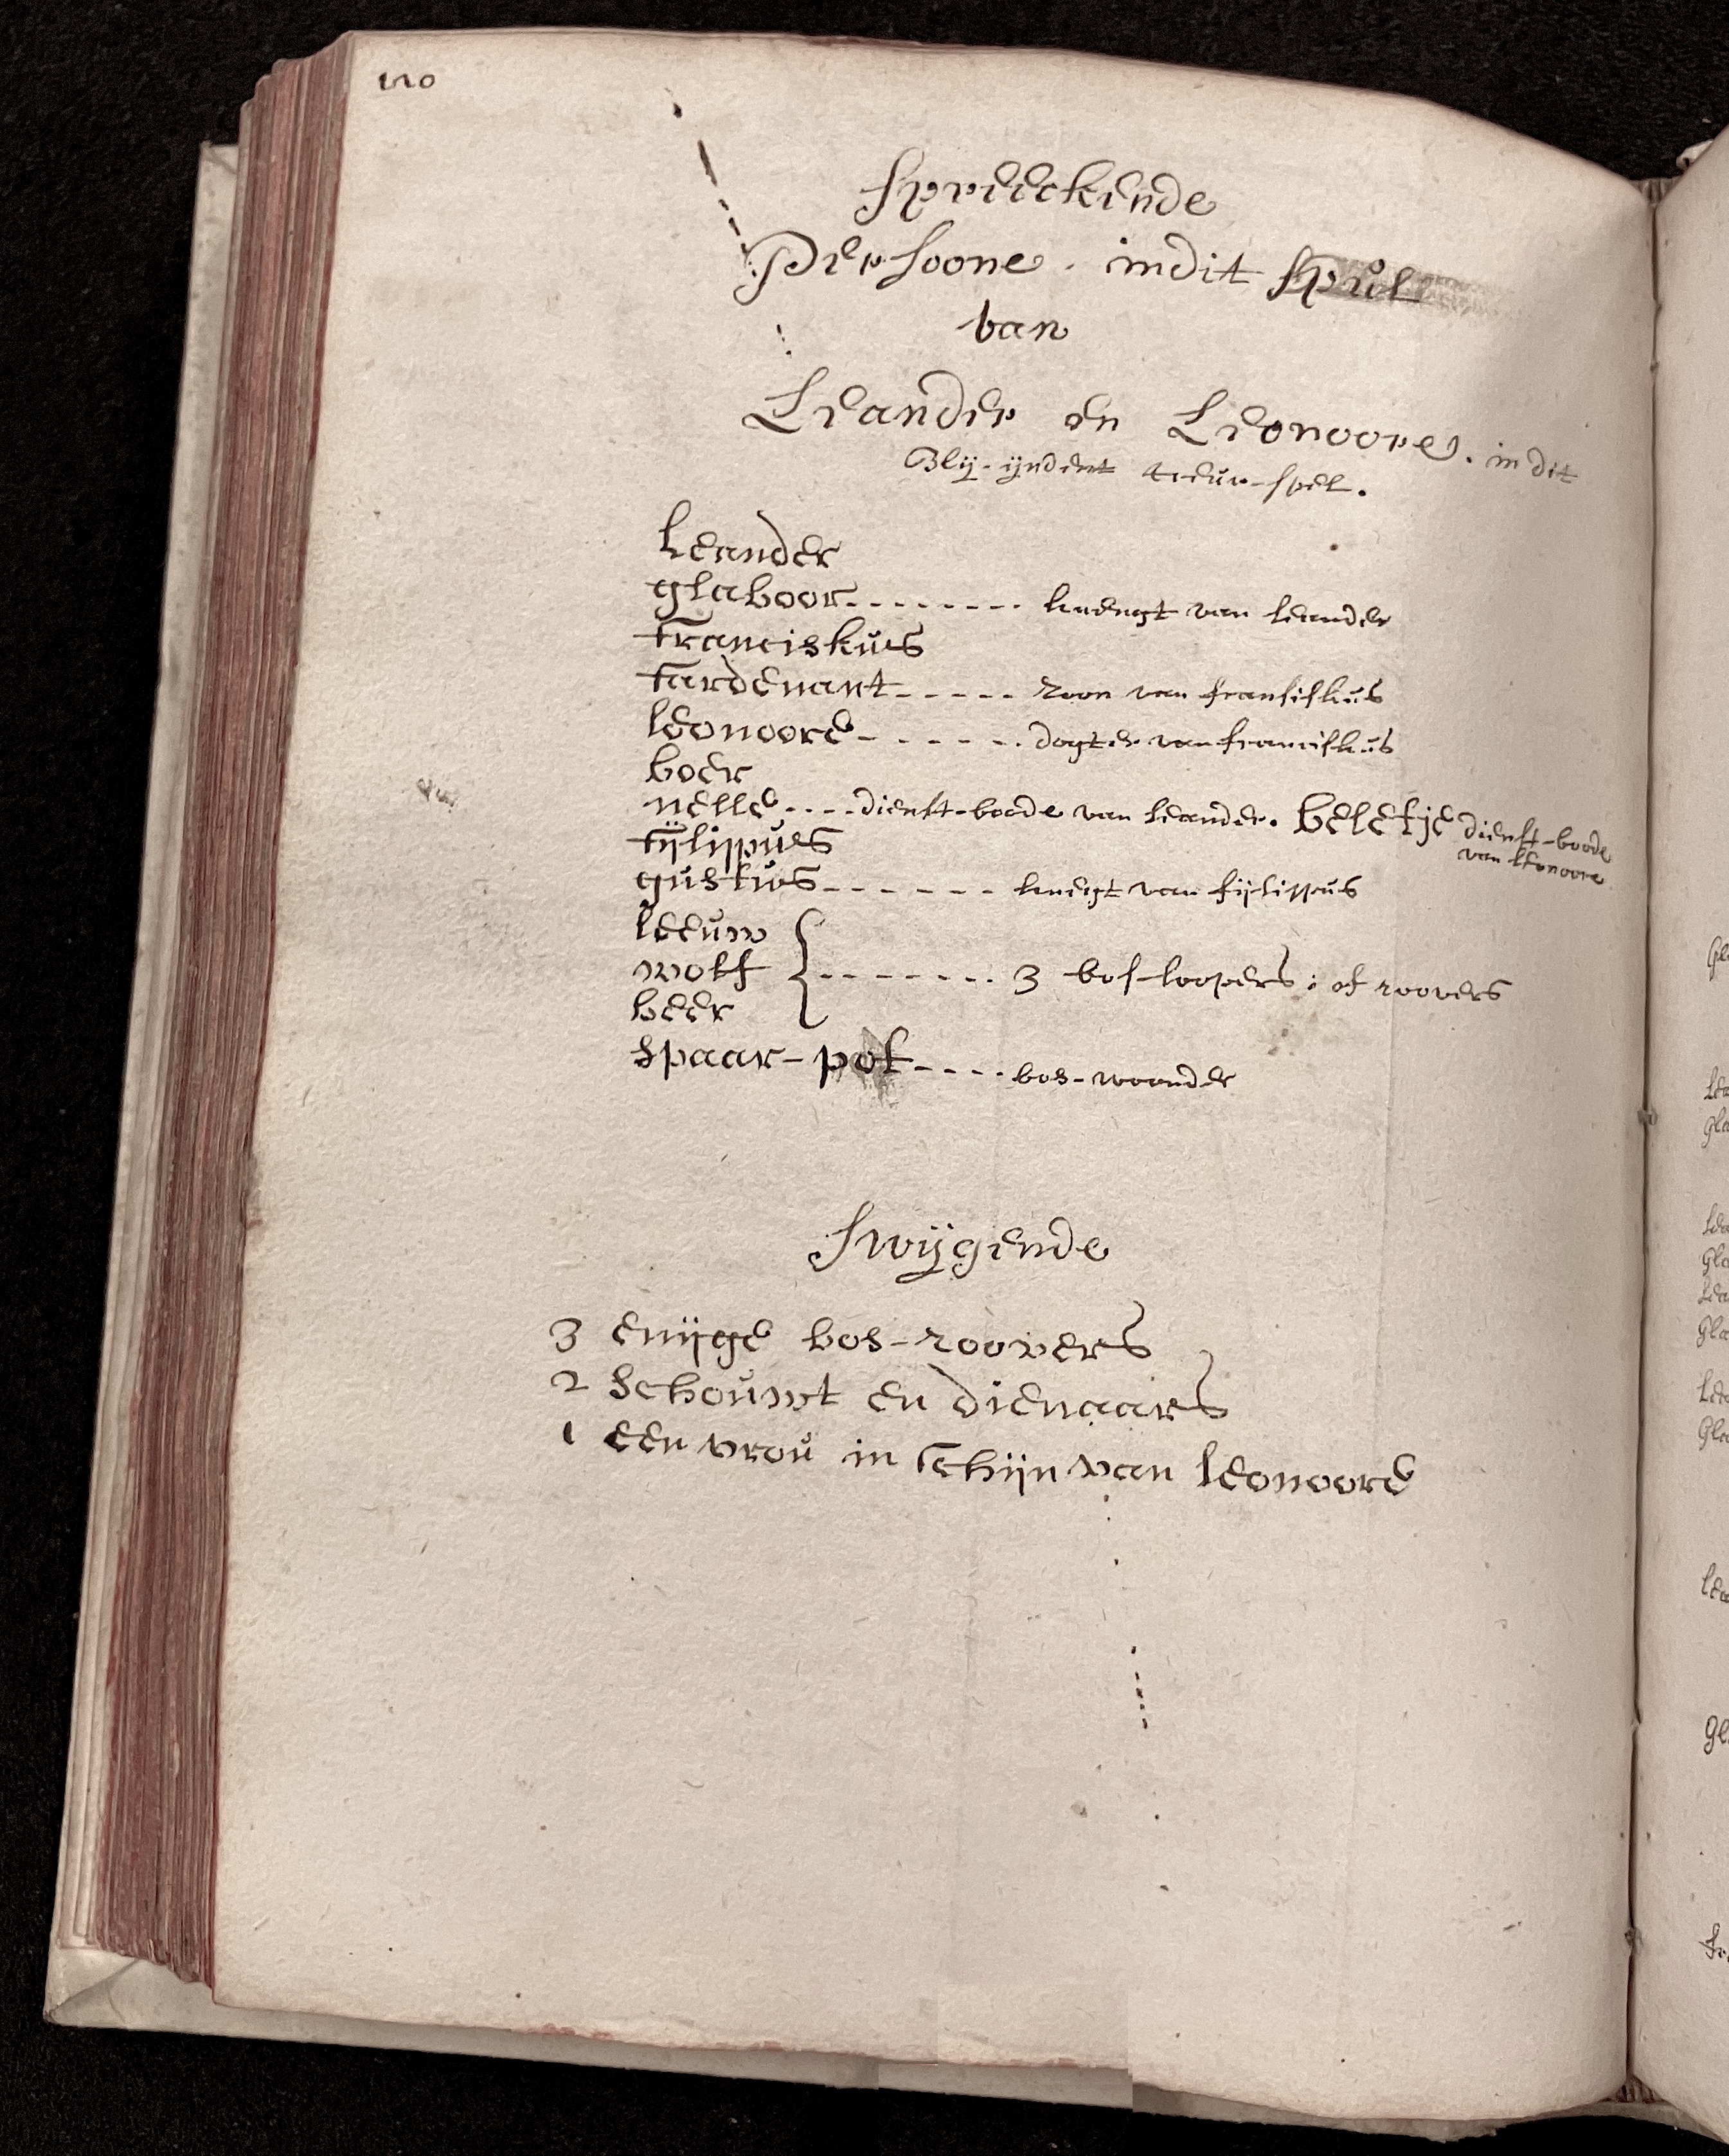 120
Spreeckende
Persoone. in dit spul
van
Leander en Leonoore. in dit
Blij-ijndent treur-spel.
Leander
glaboor........ knengt van leander
franciskus
fardenant----- zoon van fransiskus
leonoore------ dogter van franciskus
boer
nelle....dienst-boode van leander. beletje dienst-boode
van leonoore
fijlippus
guskus------ knegt van fijlippus
leeuw
wolf ........ 3 bos-loopers; of roovers
beer
spaar-pot---- bos-woonder
Swijgende
3 enijge bos-roovers
2 schouwt en dienaars
1 een vrou in schijn van leonoore
Gl
lea
gla
lea
gla
lea
gla
lea
Gla
lea
gl
fr